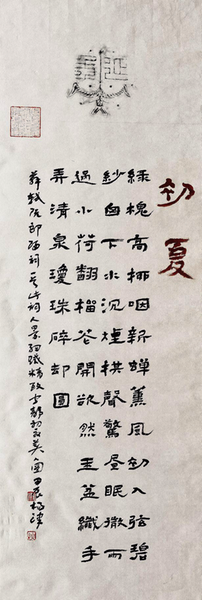 初夏
緑槐高柳咽新蟬薰風初入弦碧
紗囪下水沉煙棋聲驚昼眠微雨
過小荷翻榴花開欲然玉盆纖手
弄清泉瓊珠碎却圓
蘇軾阮郎歸詞